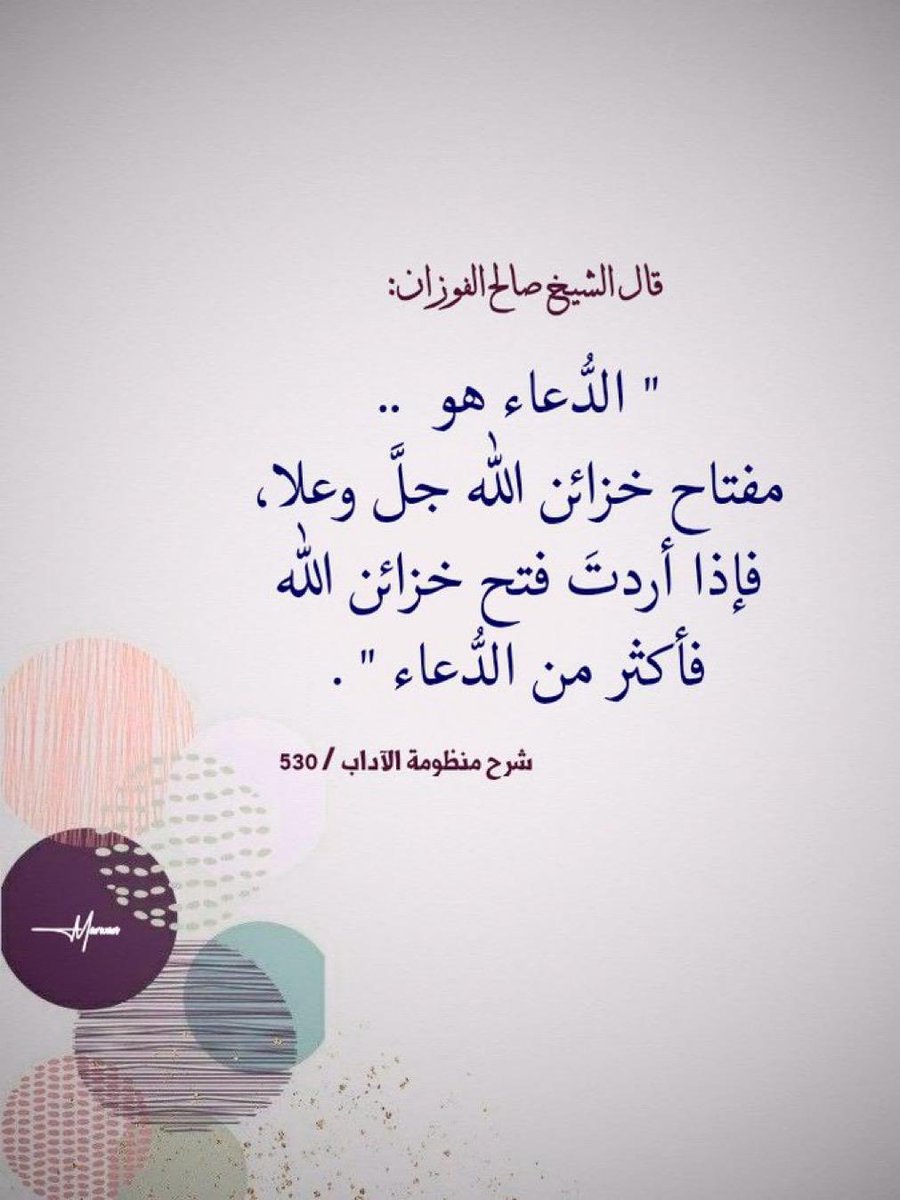 قال الشيخ صالح الفوزان:
" الدُّعاء هو ..
مفتاح خزائن الله جلَّ وعلا،
فإذا أردتَ فتح خزائن الله
فأكثر من الدُّعاء " .
شرح منظومة الآداب / 530
Marwan